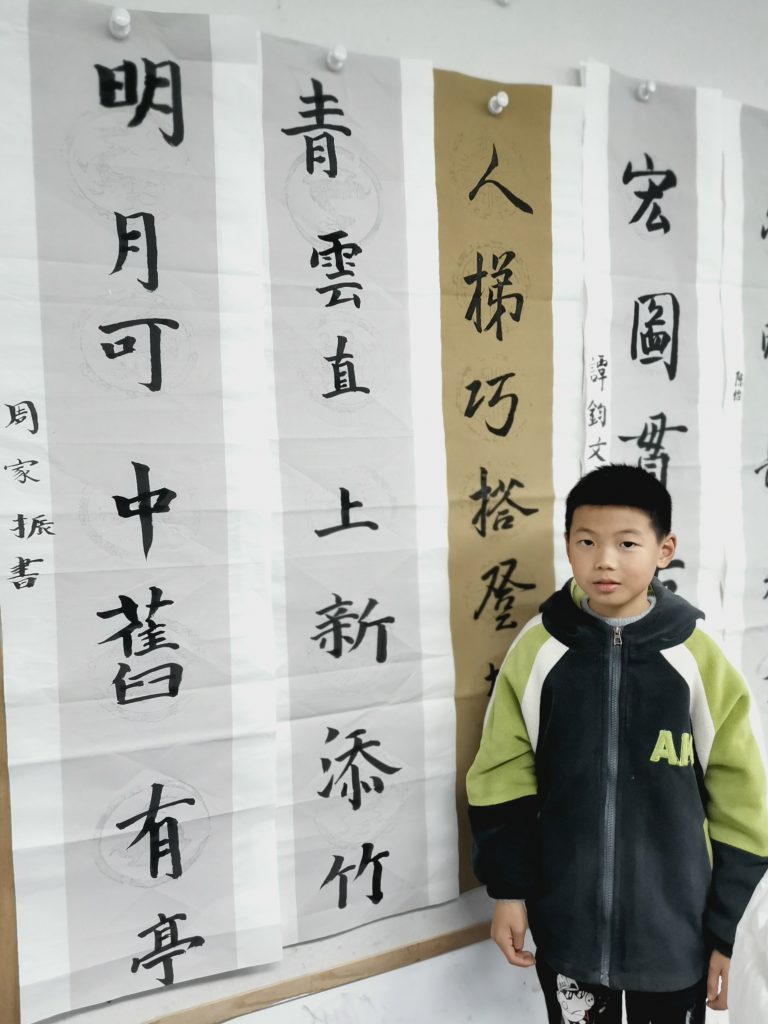 宏圖貫
譚鈞文
人梯巧搭登
青雲直上新添竹
明月可中舊有亭
周家振書